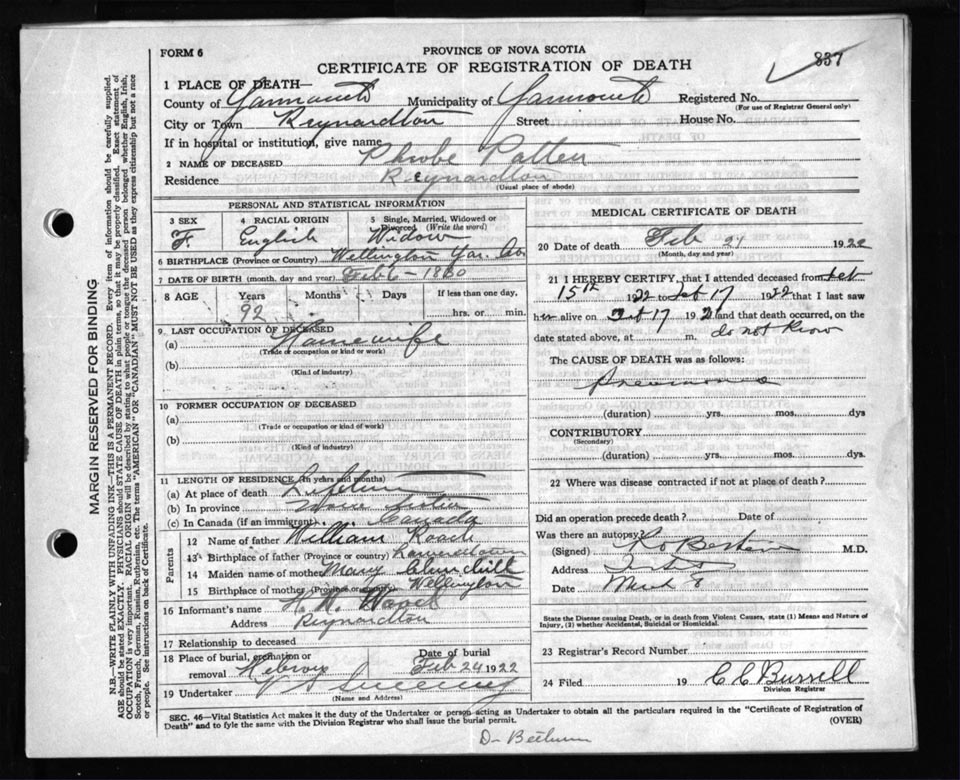 FORM 6
PROVINCE OF NOVA SCOTIA
CERTIFICATE OF REGISTRATION OF DEATH
837
1 PLACE OF DEATH—
County of Yarmouth Municipality of Yarmouth Registered No.
(For use of Registrar General only)
City or Town Reynardton Street House No.
If in hospital or institution, give name
2 NAME OF DECEASED Phoebe Patten
Residence Reynardton
(Usual place of abode)
PERSONAL AND STATISTICAL INFORMATION
3 SEX F. 4 RACIAL ORIGIN English 5 Single, Married, Widowed or Divorced (Write the word) Widow
6 BIRTHPLACE (Province or Country) Wellington Yar. Co.
7 DATE OF BIRTH (month, day and year) Feb 6 - 1830
8 AGE Years 92 Months Days If less than one day, hrs. or min.
9. LAST OCCUPATION OF DECEASED
(a) Housewife
(Trade or occupation or kind or work)
(b)
(Kind of industry)
10 FORMER OCCUPATION OF DECEASED
(a)
(Trade or occupation or kind of work)
(b)
(Kind of industry)
11 LENGTH OF RESIDENCE (In years and months)
(a) At place of death Lifetime
(b) In province Nova Scotia
(c) In Canada (if an immigrant) Canada
Parents
12 Name of father William Roach
13 Birthplace of father (Province or country)
14 Maiden name of mother Mary Churchill
15 Birthplace of mother (Province or country) Wellington
16 Informant's name H. N.
Address Reynardton
17 Relationship to deceased
18 Place of burial, cremation or removal Hebron Date of burial Feb 24 1922
19 Undertaker
(Name and Address)
MEDICAL CERTIFICATE OF DEATH
20 Date of death Feb 21 1922
(Month, day and year)
21 I HEREBY CERTIFY, that I attended deceased from Feb
15th 1922 to Feb 17 1922 that I last saw
her alive on Feb 17 192 and that death occurred, on the
date stated above, at m. do not know
The CAUSE OF DEATH was as follows:
Pneumonia
(duration) yrs. mos. dys
CONTRIBUTORY
(Secondary)
(duration) yrs. mos. dys.
22 Where was disease contracted if not at place of death?
Did an operation precede death? Date of
Was there an autopsy?
(Signed) M.D.
Address
Date Mch 8
State the Disease causing Death, or in death from Violent Causes, state (1) Means and Nature of Injury, (2) whether Accidental, Suicidal or Homicidal.
23 Registrar's Record Number
24 Filed 19 C C Burrell
Division Registrar
SEC. 46—Vital Statistics Act makes it the duty of the Undertaker or person acting as Undertaker to obtain all the particulars required in the "Certificate of Registration of
Death" and to fyle the same with the Division Registrar who shall issue the burial permit.
(OVER)
MARGIN RESERVED FOR BINDING
N.B.—WRITE PLAINLY WITH UNFADING INK—THIS IS A PERMANENT RECORD. Every item of information should be carefully supplied.
AGE should be stated EXACTLY. PHYSICIANS should STATE CAUSE OF DEATH in plain terms, so that it may be properly classified. Exact statement of
OCCUPATION is very important. RACIAL ORIGIN will be described by stating to what people or tongue the deceased person belonged whether English, Irish,
Scotch, French, German, Russian, Ruthenian, etc. The terms "AMERICAN" OR "CANADIAN" MUST NOT BE USED as they express citizenship but not a race
or people. See instructions on back of Certificate.